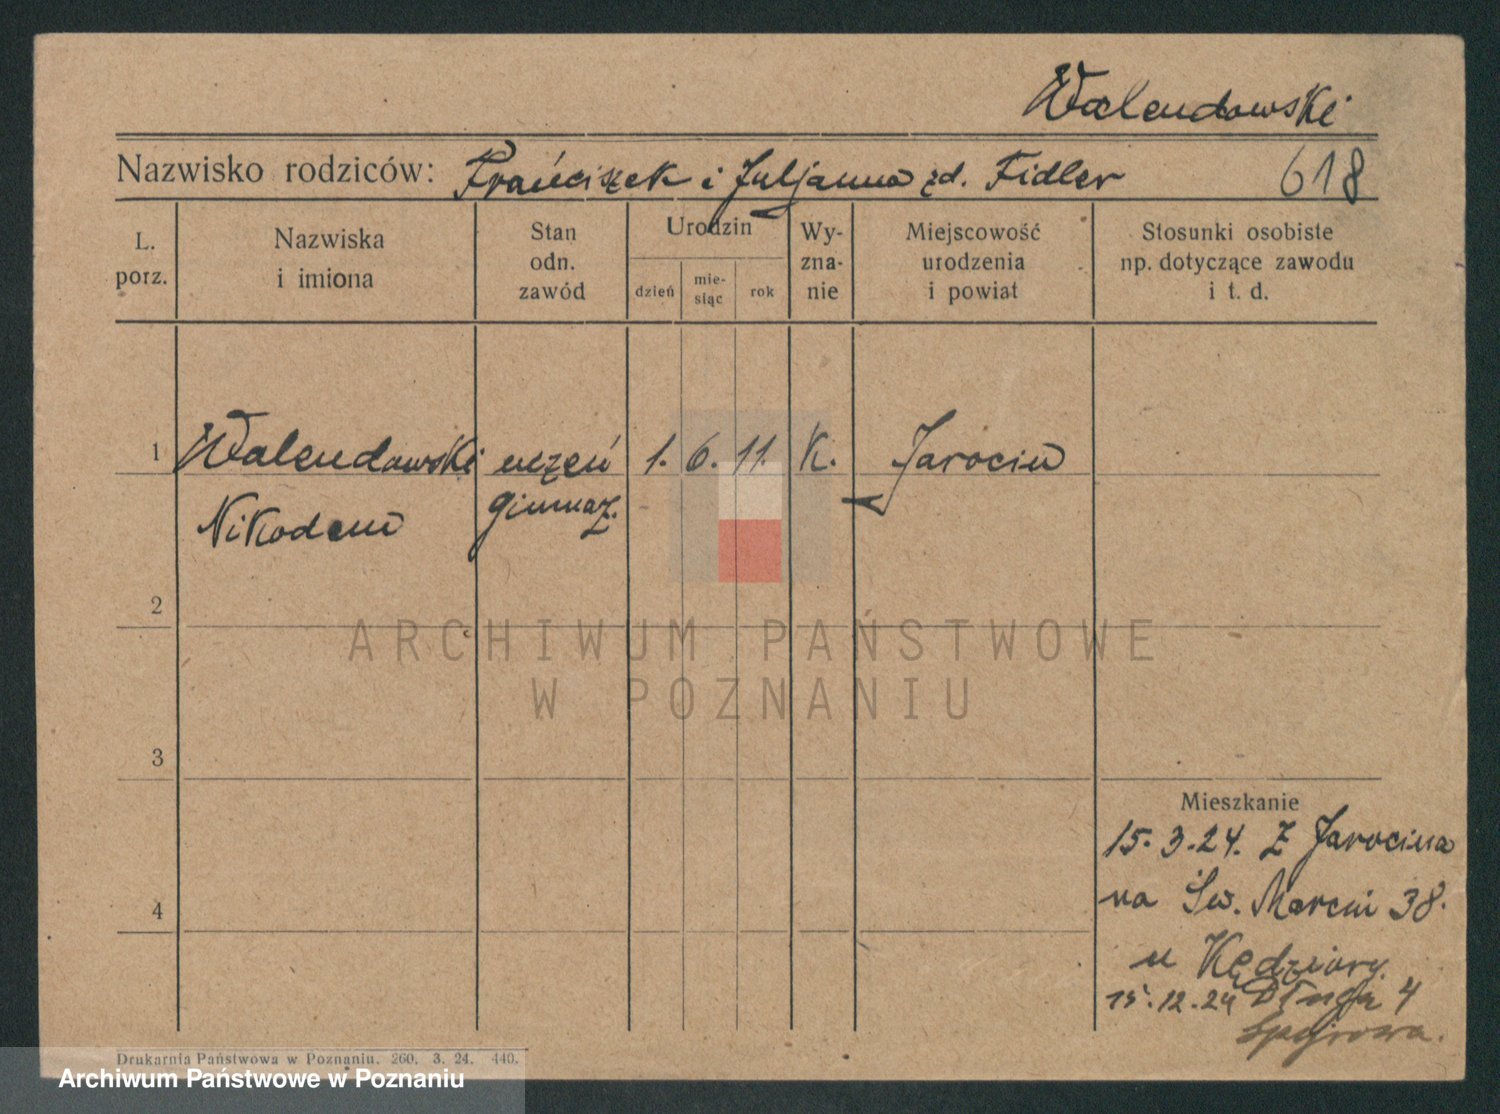 Walendowski
Nazwisko rodziców: Franciszek i Juljanna zd. Fidler 618
L. porz.
Nazwiska i imiona
Stan odn. zawód
Urodzin
dzień
mie-
siąc
rok
Wy-
zna-
nie
Miejscowość
urodzenia
i powiat
Stosunki osobiste
np. dotyczące zawodu
i t. d.
1 Walendowski uczeń 1. 6. 11. K. Jarocin
Nikodem gimnaz.
2
3
4
Mieszkanie
15.3.24. Z Jarocina
na Św. Marcin 38.
u Kędziory.
15.12.24 Długa 4
ARCHIWUM PAŃSTWOWE
W POZNANIU
Drukarnia Państwowa w Poznaniu. 260. 3. 24. 440.
Archiwum Państwowe w Poznaniu